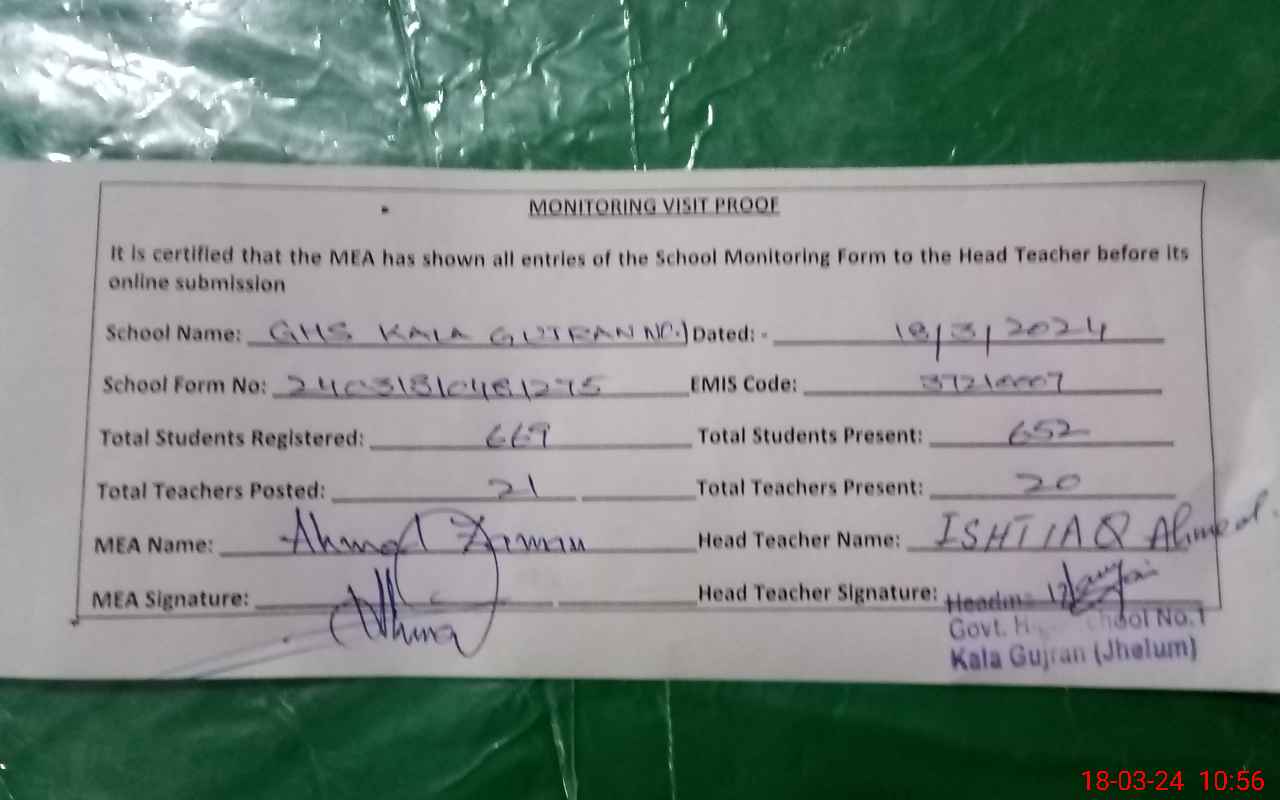 MONITORING VISIT PROOF
It is certified that the MEA has shown all entries of the School Monitoring Form to the Head Teacher before its
online submission
School Name: GHS KALA GUJRAN NO.1 Dated: - 18/3/2024
School Form No: EMIS Code: 37210007
Total Students Registered: 669 Total Students Present: 652
Total Teachers Posted: 21 Total Teachers Present: 20
MEA Name: Ahmed Head Teacher Name: ISHTIAQ Ahmed.
MEA Signature: Head Teacher Signature:
Govt. School No.1
Kala Gujran (Jhelum)
18-03-24 10:56